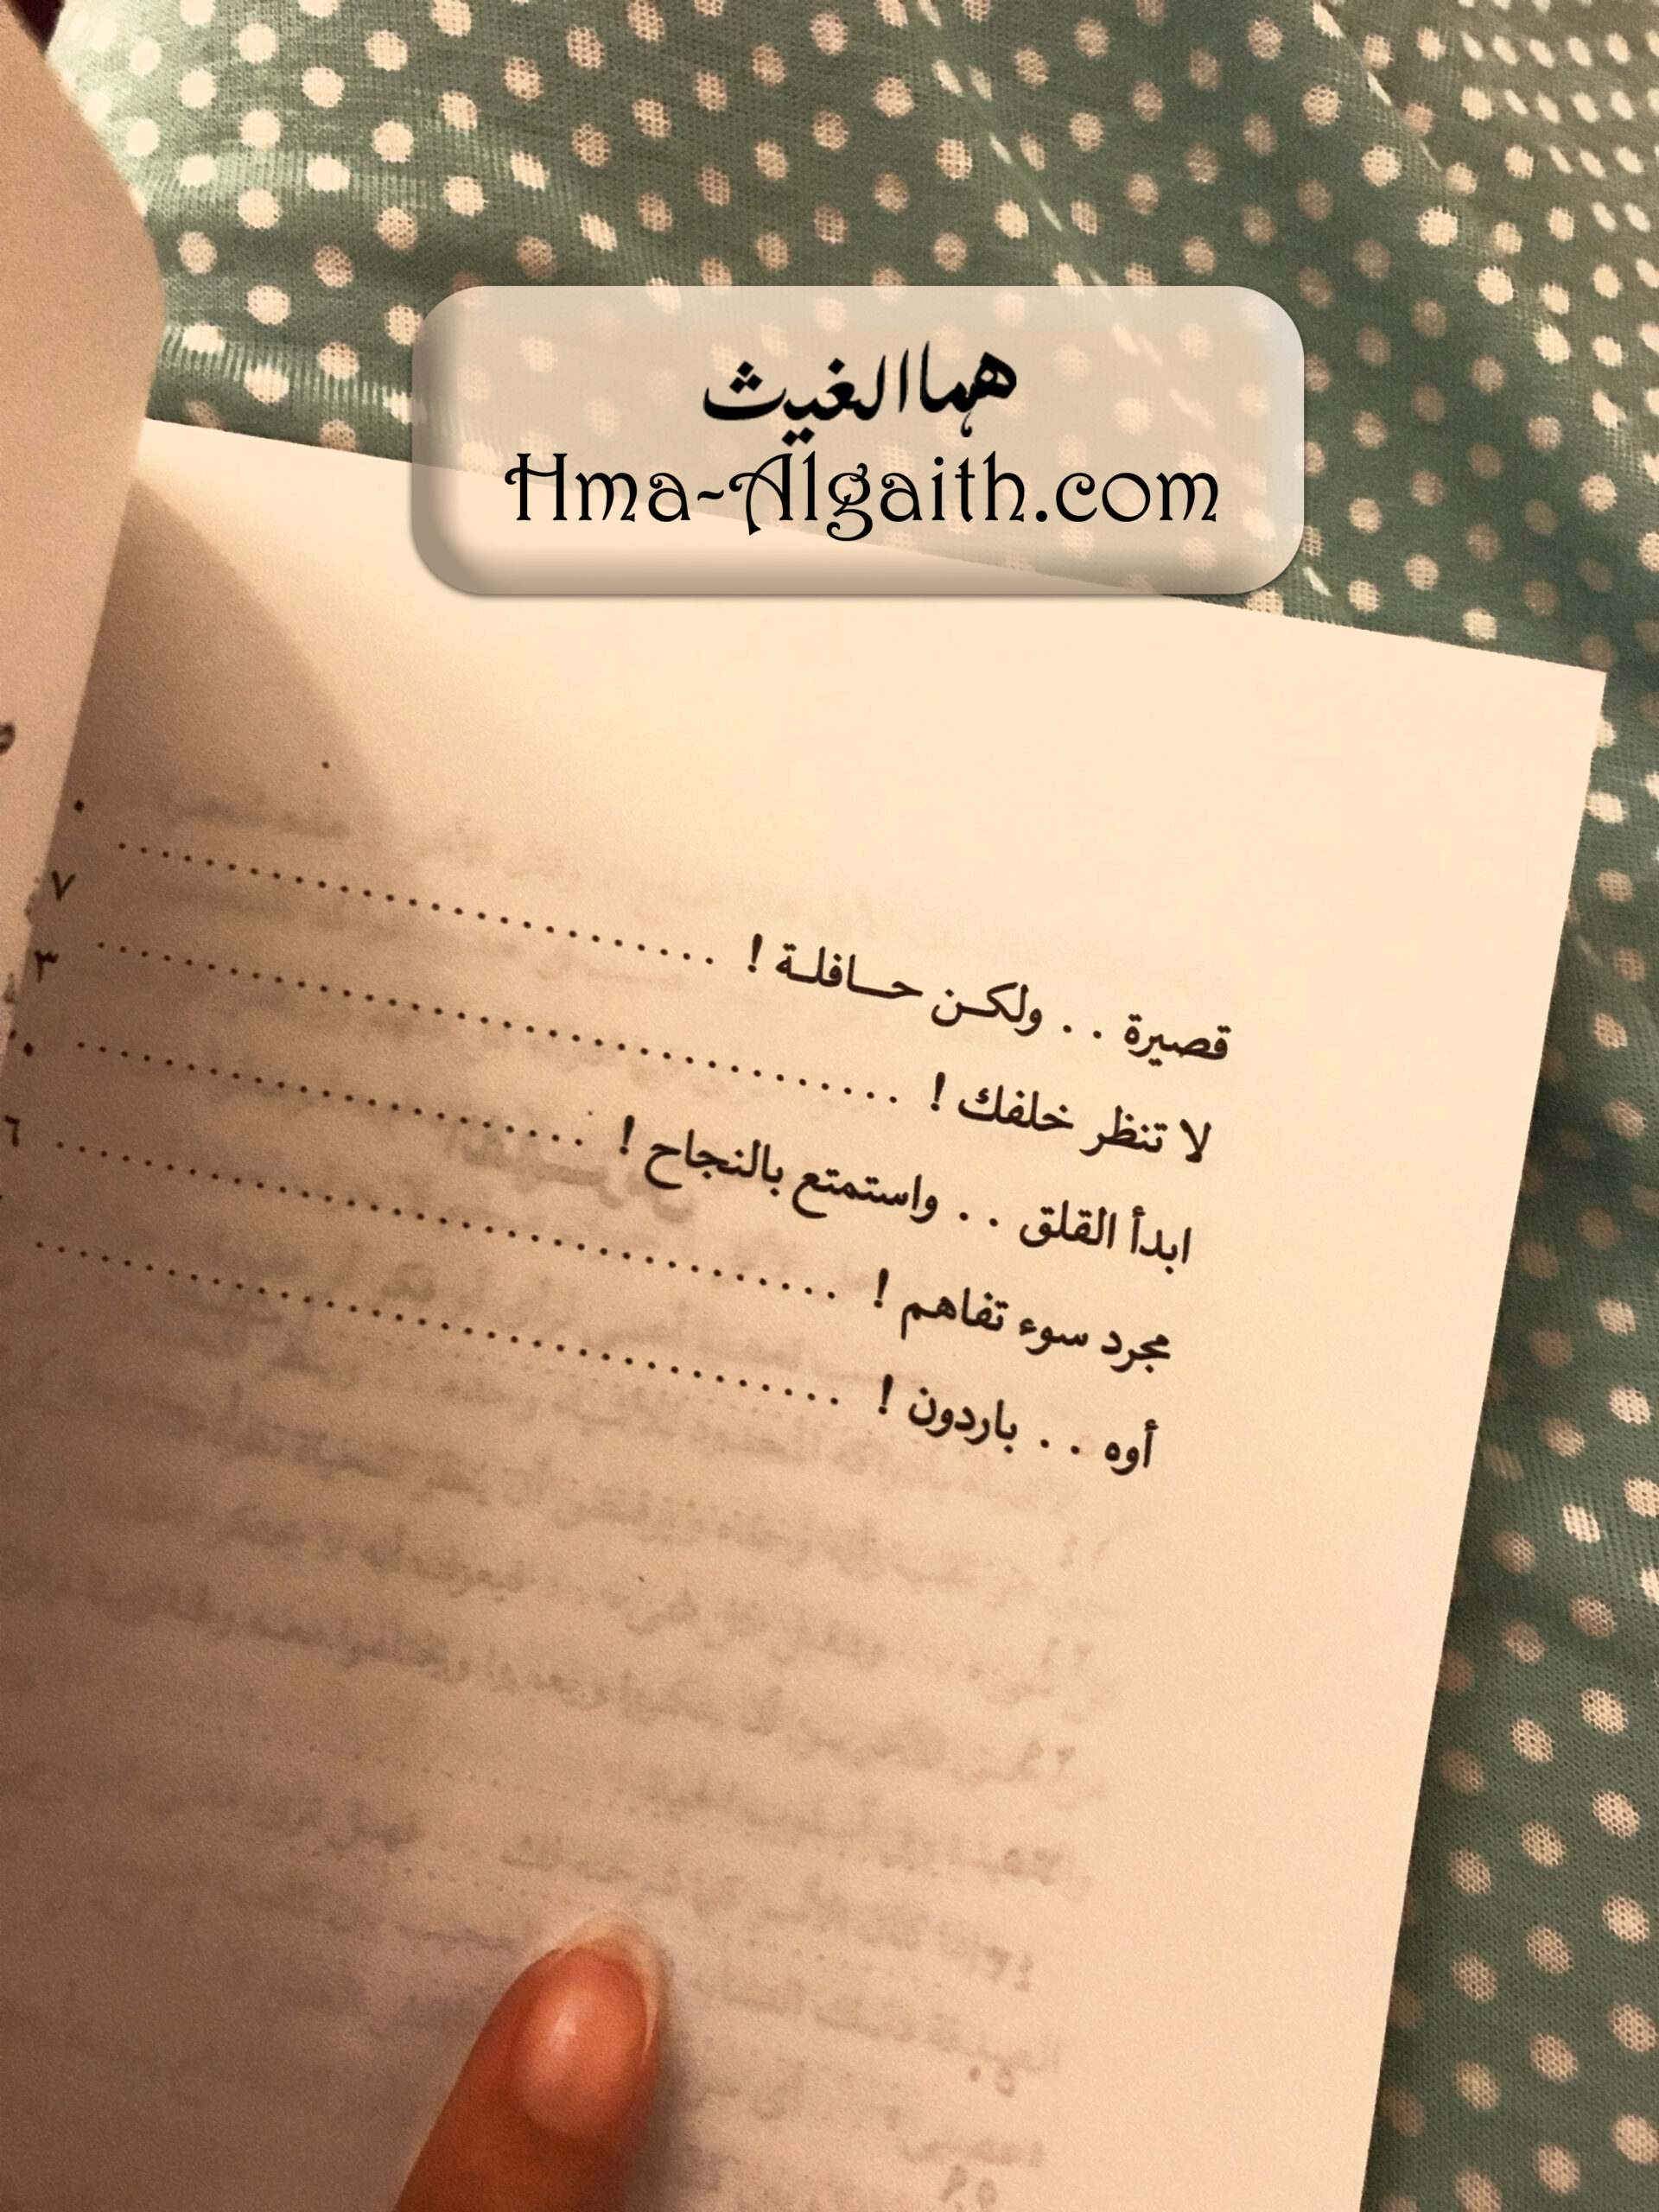 هما الغيث
Hma-Algaith.com
قصيرة . . ولكن حافلة !
لا تنظر خلفك !
ابدأ القلق . . واستمتع بالنجاح !
مجرد سوء تفاهم !
أوه . . باردون !